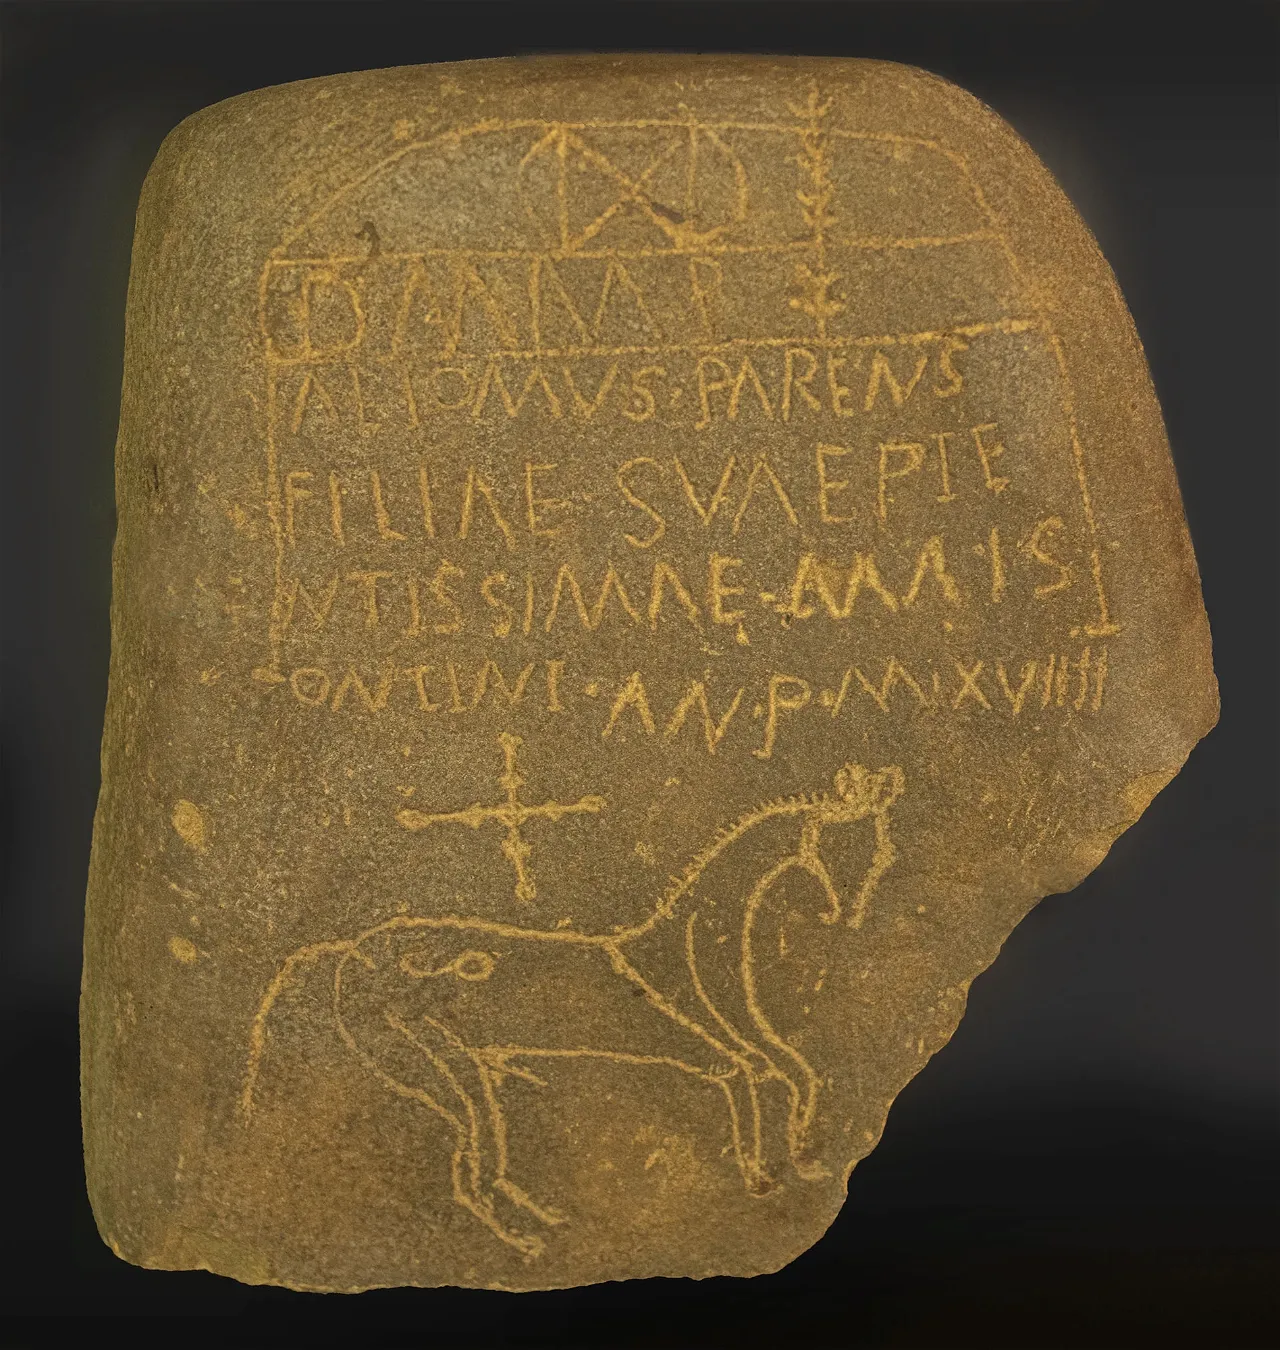 D M M P
ALIOMVS·PARENS
FILIAE SVAE PIE
NTISSIMAE·
ONTINI·AN·P·M·XVIIII